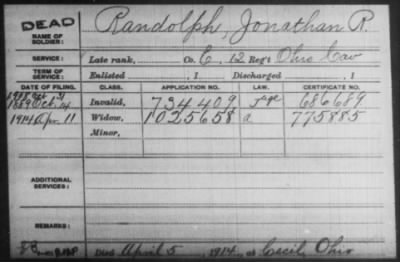 DEAD
NAME OF SOLDIER: Randolph, Jonathan R.
SERVICE: Late rank, Co. E, 12 Reg't Ohio Cav
TERM OF SERVICE: Enlisted , 1 Discharged , 1
DATE OF FILING. CLASS. APPLICATION NO. LAW. CERTIFICATE NO.
1889 Oct. 14 Invalid, 734409 686689
1914 Apr. 11 Widow, 1025658 a 775885
Minor,
ADDITIONAL SERVICES:
REMARKS:
Died April 5, 1914, at Cecil, Ohio